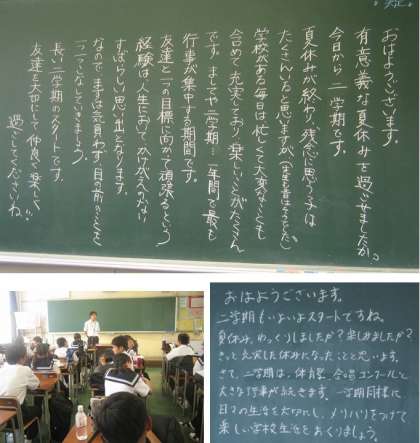 おはようございます。
有意義な夏休みを過ごせましたか。
今日から二学期です。
夏休みが終わり、残念に思う子は
たくさんいると思いますが
学校がある毎日は忙しくて大変なことも
含めて充実しており楽しいことがたくさん
です。ましてや二学期…一年間で最も
行事が集中する期間です。
友達と一つの目標に向かって頑張るという
経験は人生において、かけがえのない
すばらしい思い出となります。
なので、まずは気負わず目の前のことを
一つ一つこなしていきましょう。
長い二学期のスタートです。
友達を大切にして仲良く楽しく
過ごしてくださいね。
おはようございます。
二学期もいよいよスタートですね。
夏休み、ゆっくりしましたか？楽しみましたか？
きっと充実した休みになったことと思います。
さて、二学期は、体育祭、合唱コンクールと
大きな行事が続きます。一学期同様に、
日々の生活を大切にし、メリハリをつけて
楽しい学校生活をおくりましょう。